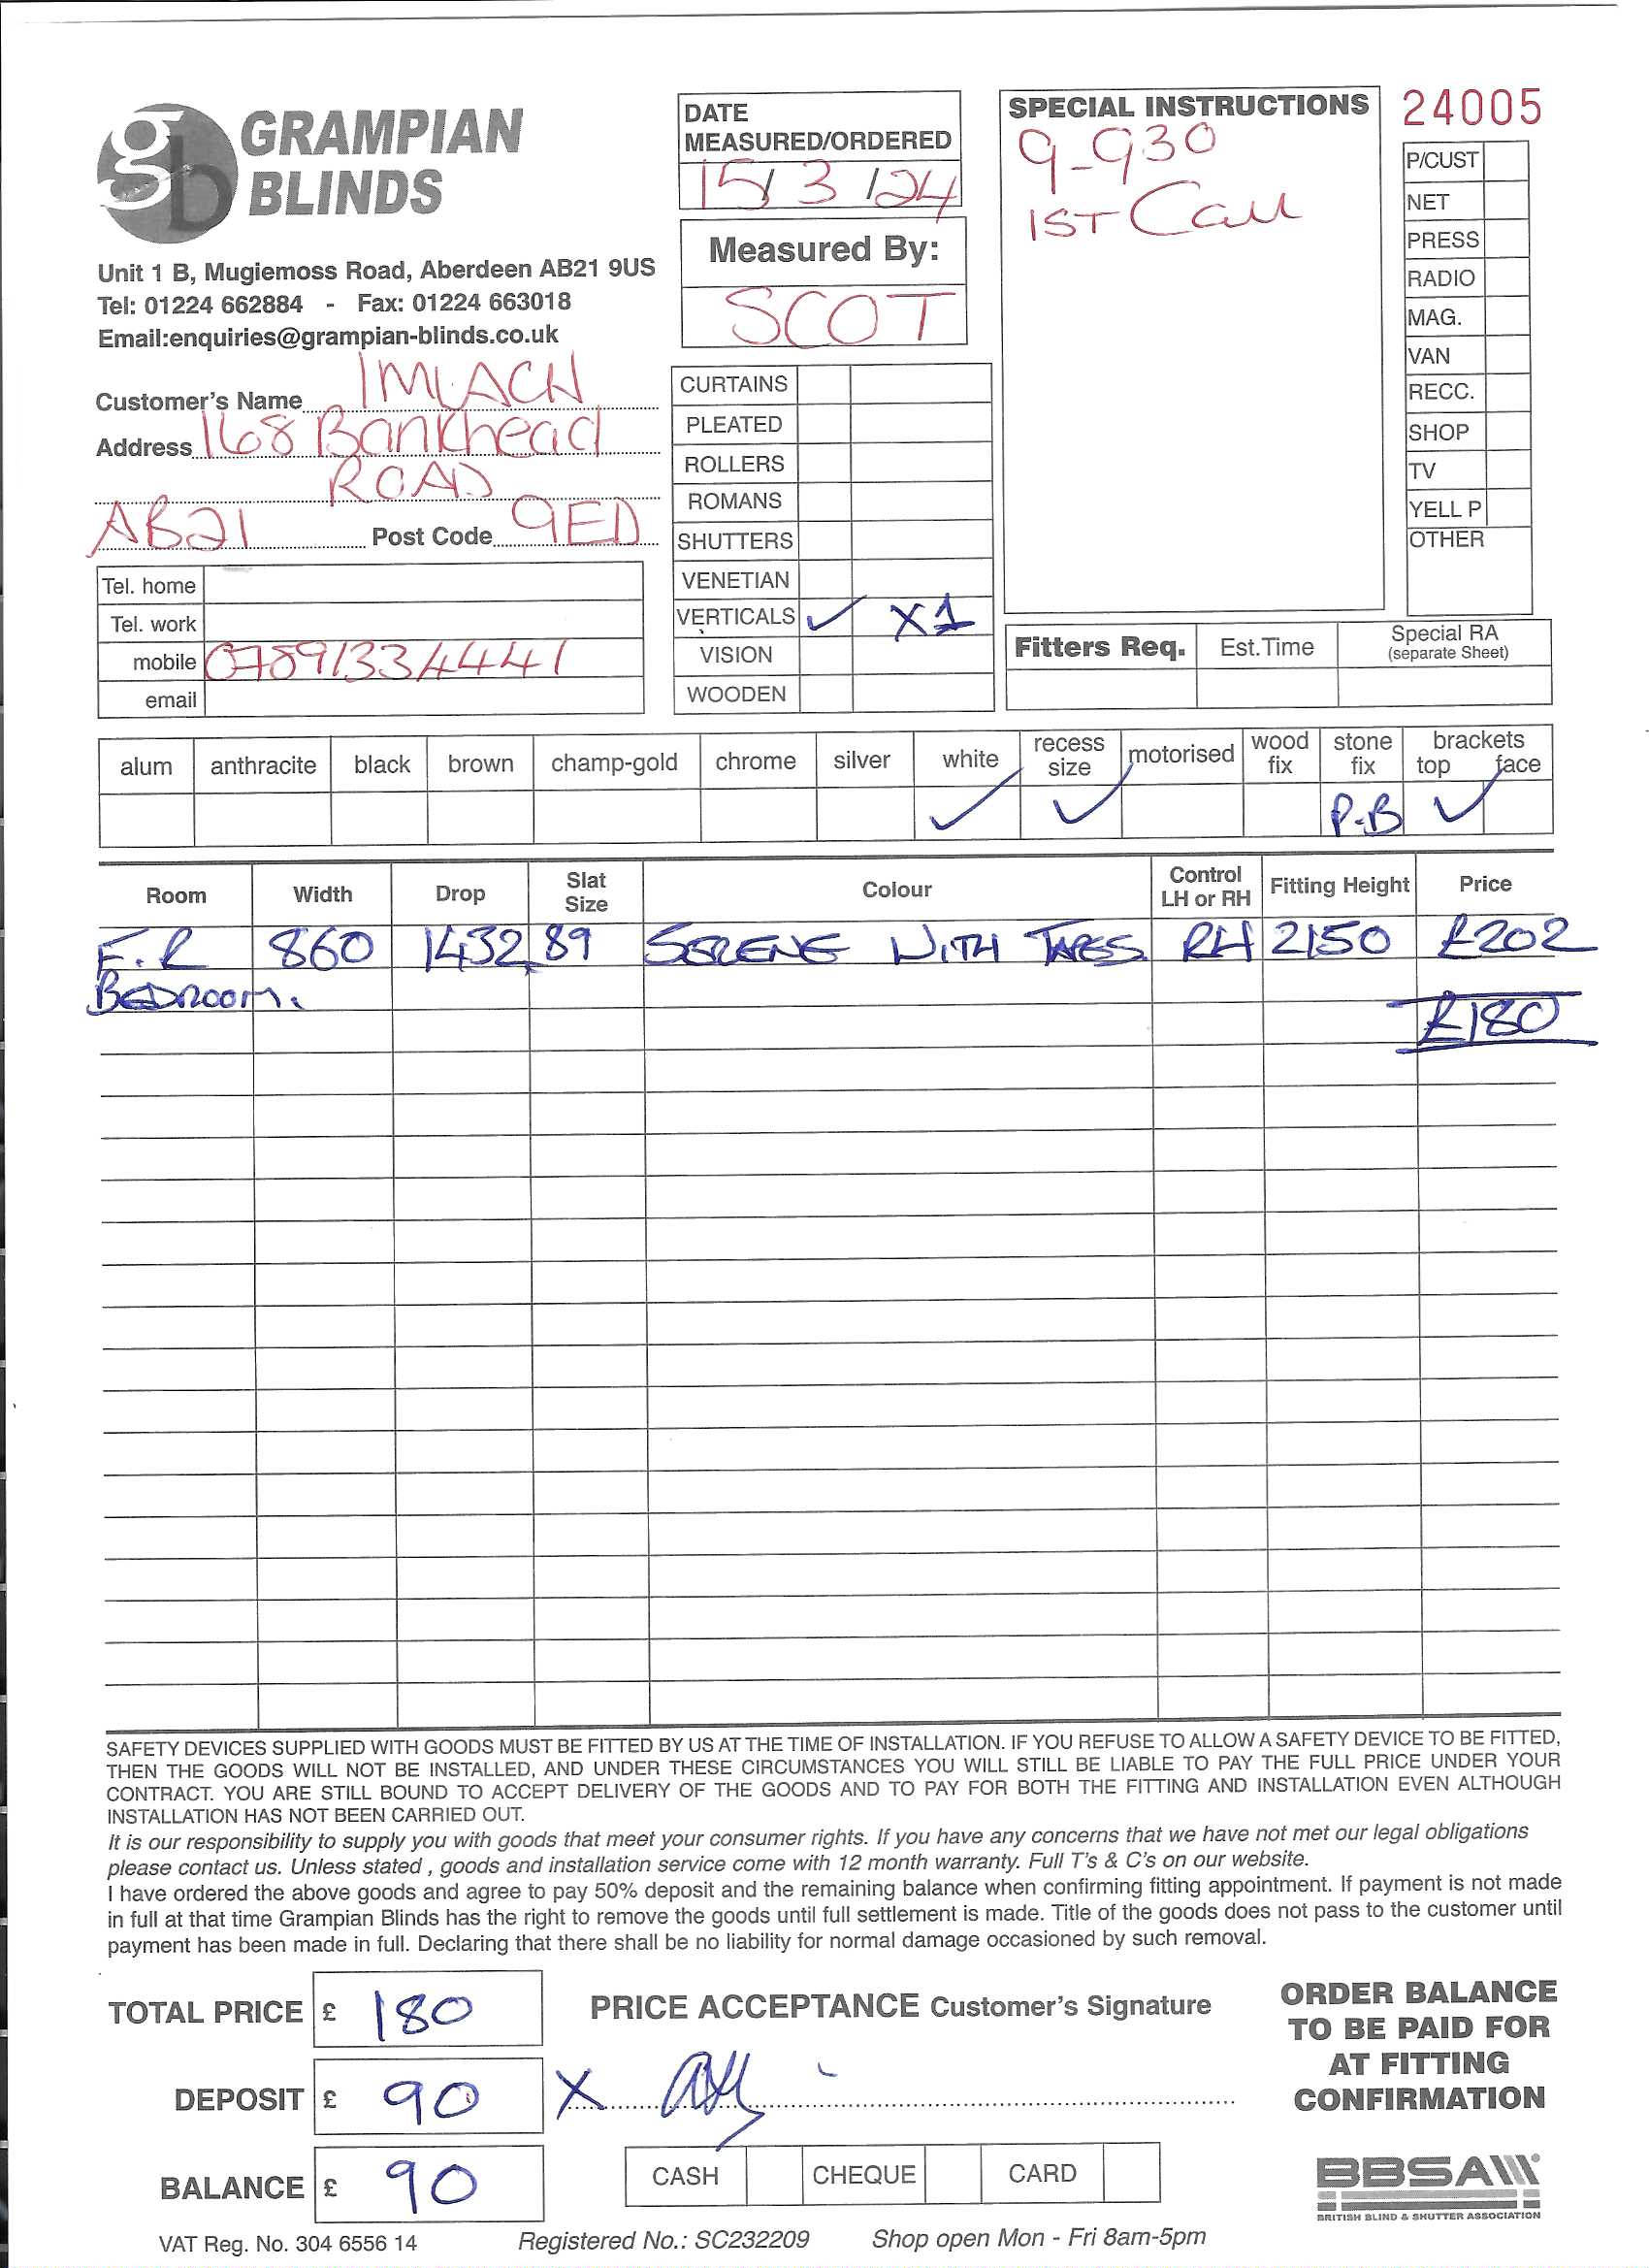 gb GRAMPIAN
BLINDS
Unit 1 B, Mugiemoss Road, Aberdeen AB21 9US
Tel: 01224 662884 - Fax: 01224 663018
Email:enquiries@grampian-blinds.co.uk
Customer's Name IMLACH
Address 168 Bankhead
ROAD
AB21 Post Code 9ED
Tel. home
Tel. work
mobile 07891334441
email
DATE
MEASURED/ORDERED
15/3/24
Measured By:
SCOT
CURTAINS
PLEATED
ROLLERS
ROMANS
SHUTTERS
VENETIAN
VERTICALS ✓ X1
VISION
WOODEN
SPECIAL INSTRUCTIONS
9-930
1ST Call
24005
P/CUST
NET
PRESS
RADIO
MAG.
VAN
RECC.
SHOP
TV
YELL P
OTHER
Fitters Req. Est.Time Special RA
(separate Sheet)
alum anthracite black brown champ-gold chrome silver white recess size motorised wood fix stone fix brackets top face
✓ ✓ P.B ✓
Room Width Drop Slat Size Colour Control LH or RH Fitting Height Price
F.R 860 1432 89 SERENE WITH TAPES RH 2150 £202
BEDROOM.
£180
SAFETY DEVICES SUPPLIED WITH GOODS MUST BE FITTED BY US AT THE TIME OF INSTALLATION. IF YOU REFUSE TO ALLOW A SAFETY DEVICE TO BE FITTED,
THEN THE GOODS WILL NOT BE INSTALLED, AND UNDER THESE CIRCUMSTANCES YOU WILL STILL BE LIABLE TO PAY THE FULL PRICE UNDER YOUR
CONTRACT. YOU ARE STILL BOUND TO ACCEPT DELIVERY OF THE GOODS AND TO PAY FOR BOTH THE FITTING AND INSTALLATION EVEN ALTHOUGH
INSTALLATION HAS NOT BEEN CARRIED OUT.
It is our responsibility to supply you with goods that meet your consumer rights. If you have any concerns that we have not met our legal obligations
please contact us. Unless stated , goods and installation service come with 12 month warranty. Full T's & C's on our website.
I have ordered the above goods and agree to pay 50% deposit and the remaining balance when confirming fitting appointment. If payment is not made
in full at that time Grampian Blinds has the right to remove the goods until full settlement is made. Title of the goods does not pass to the customer until
payment has been made in full. Declaring that there shall be no liability for normal damage occasioned by such removal.
TOTAL PRICE £ 180
DEPOSIT £ 90
BALANCE £ 90
PRICE ACCEPTANCE Customer's Signature
X
CASH CHEQUE CARD
ORDER BALANCE
TO BE PAID FOR
AT FITTING
CONFIRMATION
BBSA
BRITISH BLIND & SHUTTER ASSOCIATION
VAT Reg. No. 304 6556 14 Registered No.: SC232209 Shop open Mon - Fri 8am-5pm